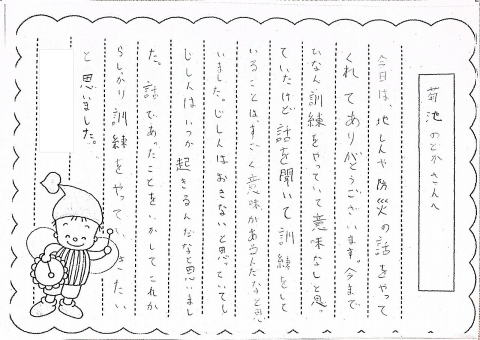 菊池のどかさんへ
今日は、地しんや防災の話をやって
くれてありがとうございます。今まで
ひなん訓練をやっていて意味なしと思
ていたけど話を聞いて訓練をして
いることは、すごく意味があるんだなと思
いました。じしんはおきないと思っていても
じしんはいつか起きるんだなと思いまし
た。話であったことをいかしてこれか
らしかり訓練をやっていきたい
と思いました。